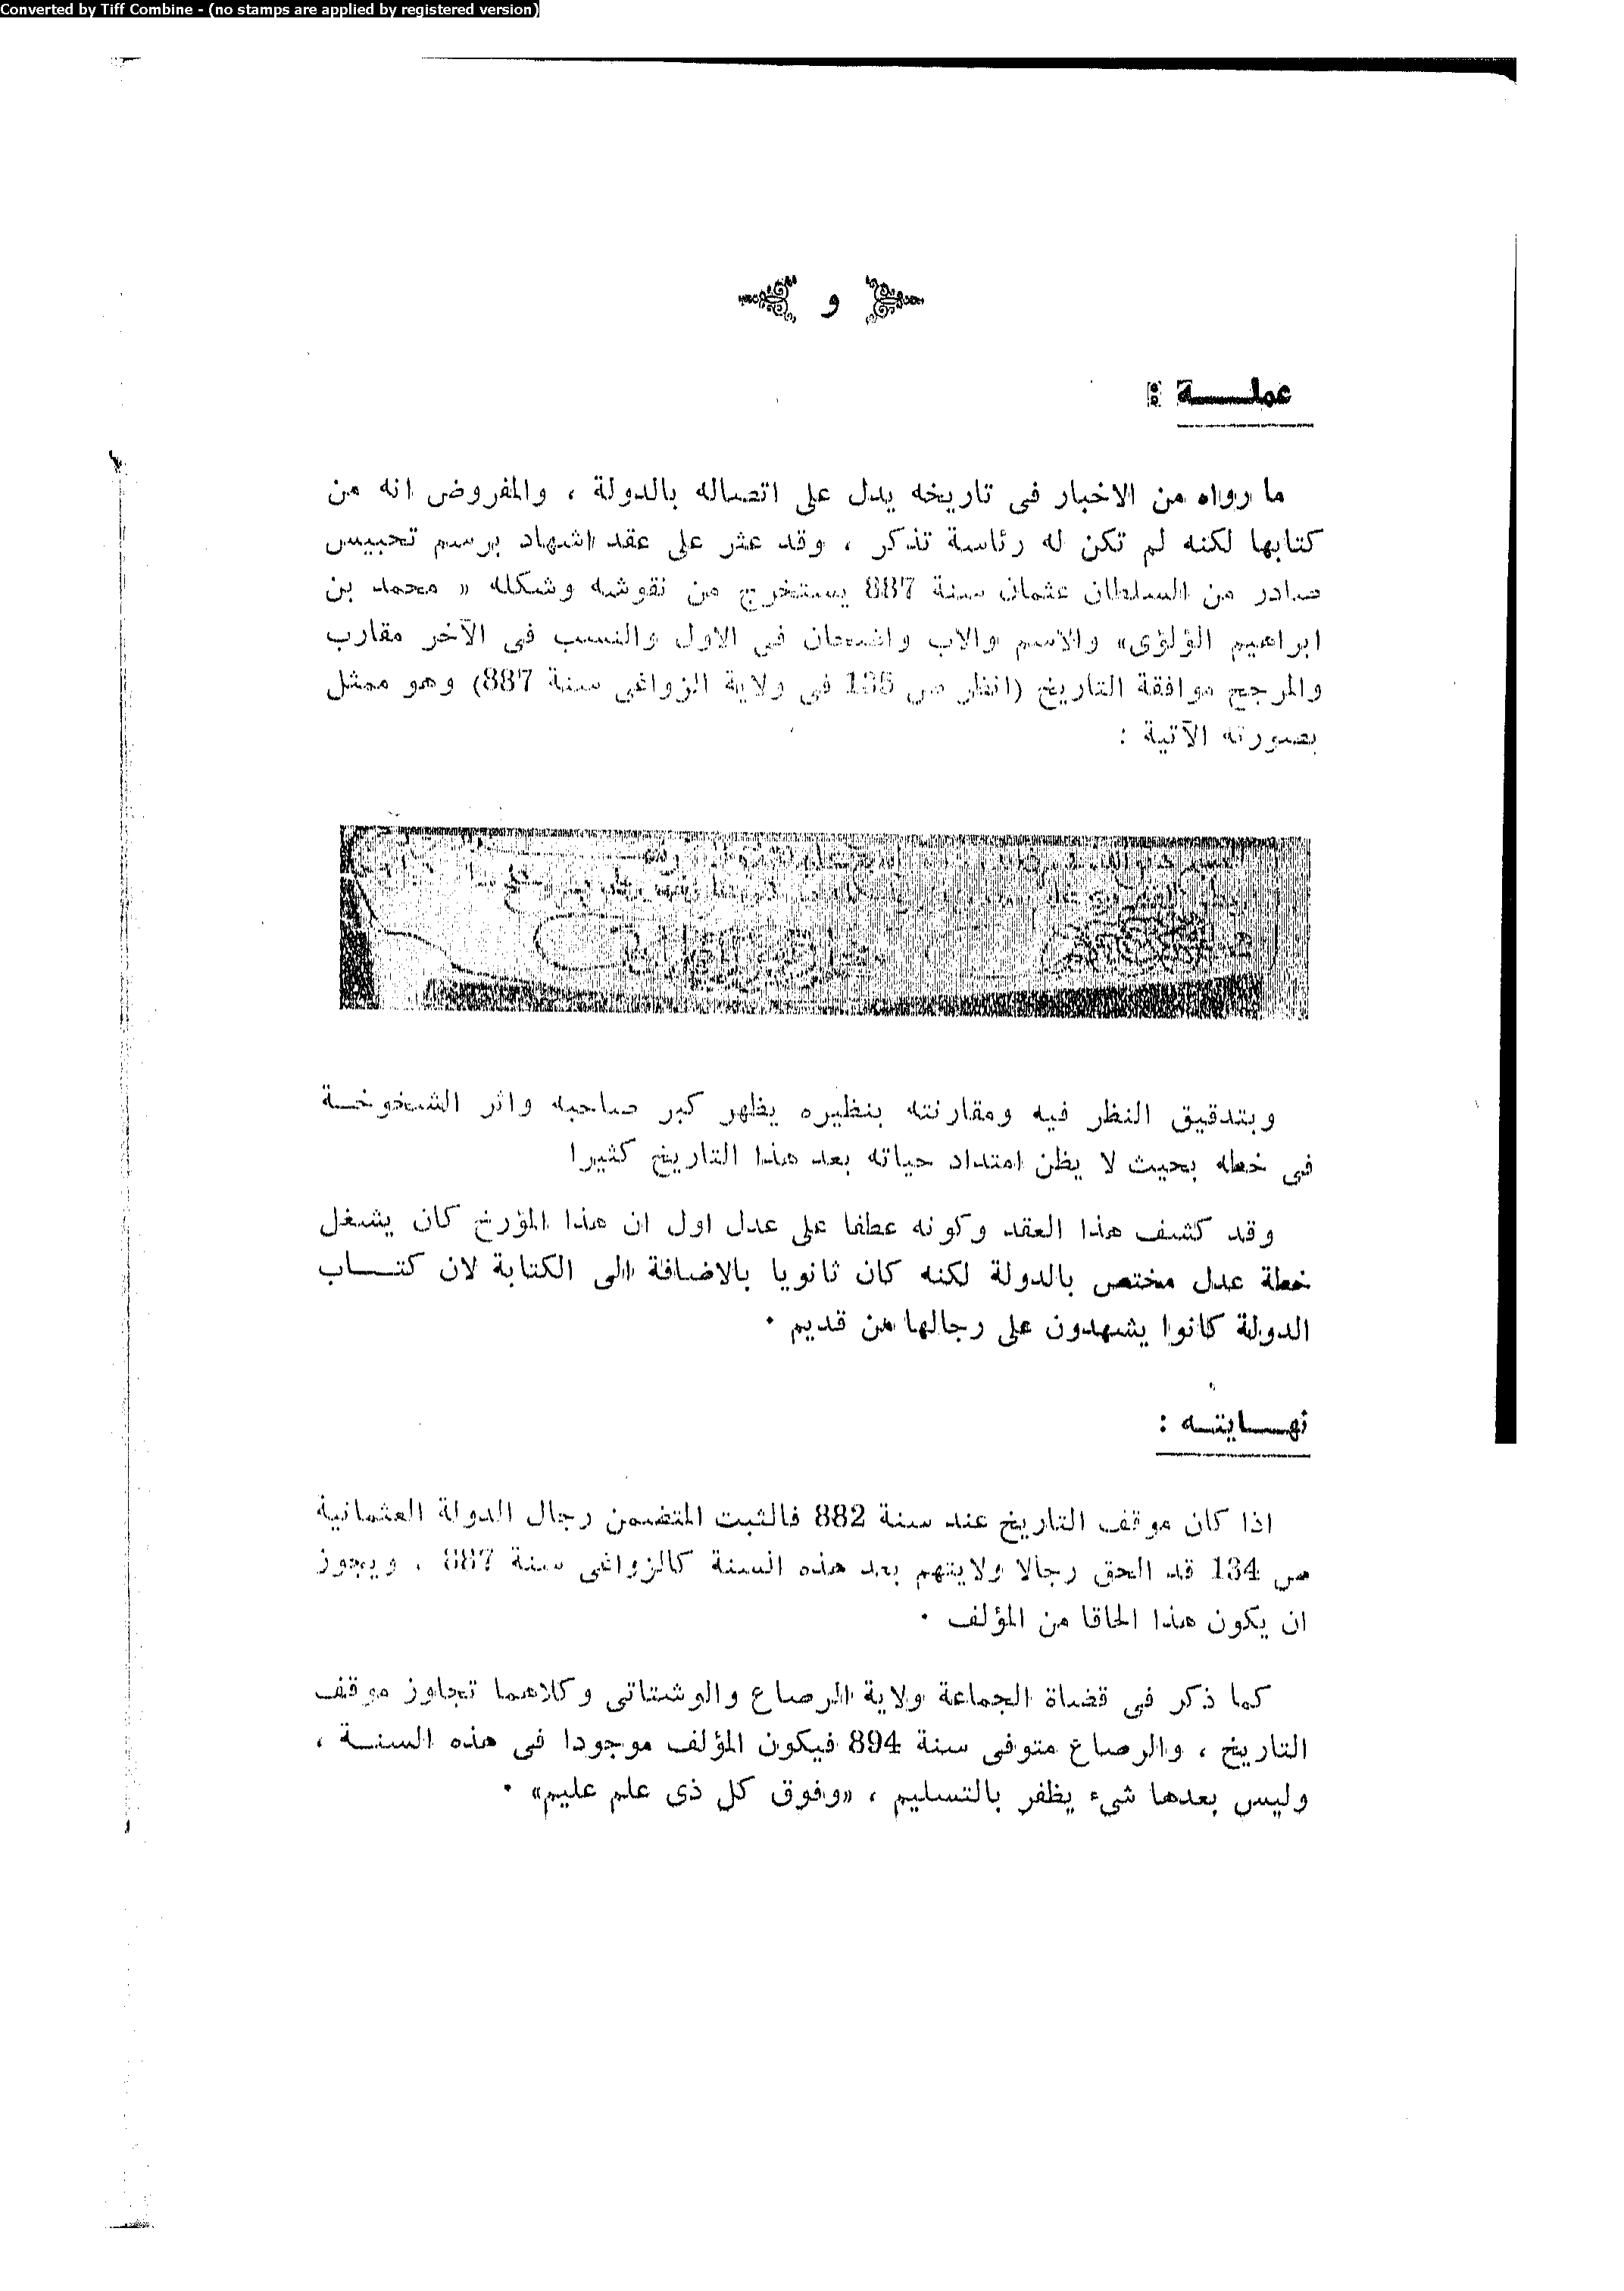 Converted by Tiff Combine - (no stamps are applied by registered version)
و
عملـــة :
ما رواه من الاخبار فى تاريخه يدل على اتصاله بالدولة ، والمفروض انه من
كتابها لكنه لم تكن له رئاسة تذكر ، وقد عثر على عقد اشهاد برسم تحبيس
صادر من السلطان عثمان سنة 887 يستخرج من نقوشه وشكله « محمد بن
ابراهيم الؤلؤى» والاسم والاب واضحان فى الاول والنسب فى الآخر مقارب
والمرجح موافقة التاريخ (انظر ص 135 فى ولاية الزواغى سنة 887) وهو ممثل
بصورته الآتية :
وبتدقيق النظر فيه ومقارنته بنظيره يظهر كبر صاحبه واثر الشخوخـة
فى خطه بحيث لا يظن امتداد حياته بعد هذا التاريخ كثيرا
وقد كشف هذا العقد وكونه عطفا على عدل اول ان هذا المؤرخ كان يشغل
خطة عدل مختص بالدولة لكنه كان ثانويا بالاضافة الى الكتابة لان كتـــاب
الدولة كانوا يشهدون على رجالها من قديم .
نهـــايتـه :
اذا كان موقف التاريخ عند سنة 882 فالثبت المتضمن رجال الدولة العثمانية
ص 134 قد الحق رجالا ولايتهم بعد هذه السنة كالزواغى سنة 887 ، ويجوز
ان يكون هذا الحاقا من المؤلف .
كما ذكر فى قضاة الجماعة ولاية الرصاع والوشتاتى وكلاهما تجاوز موقف
التاريخ ، والرصاع متوفى سنة 894 فيكون المؤلف موجودا فى هذه السنـة ،
وليس بعدها شىء يظفر بالتسليم ، «وفوق كل ذى علم عليم» .